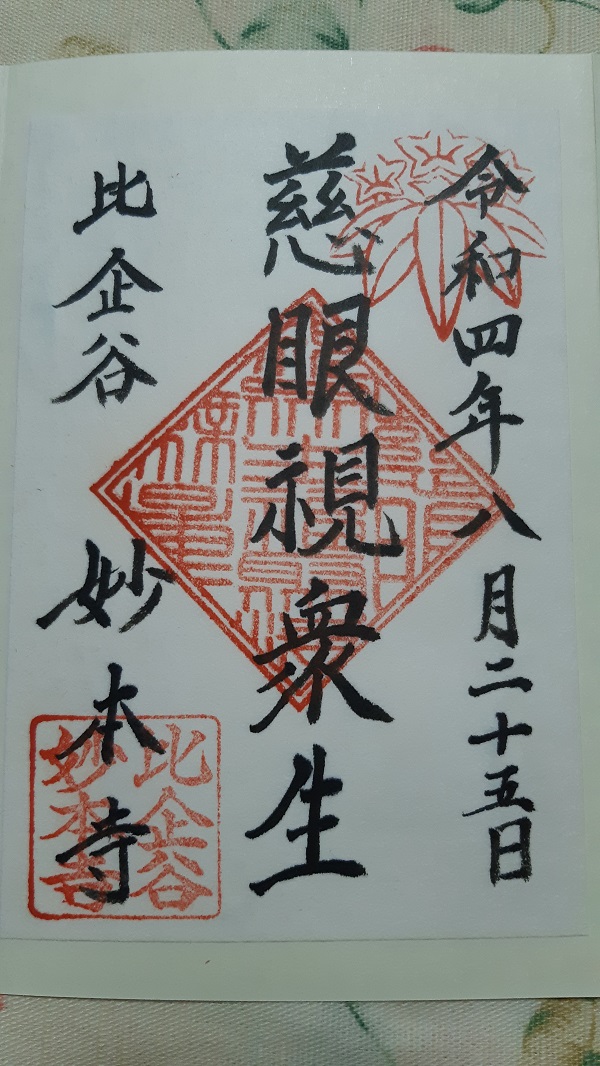 令和四年八月二十五日
慈眼視衆生
比企谷 妙本寺
比企谷
妙本寺